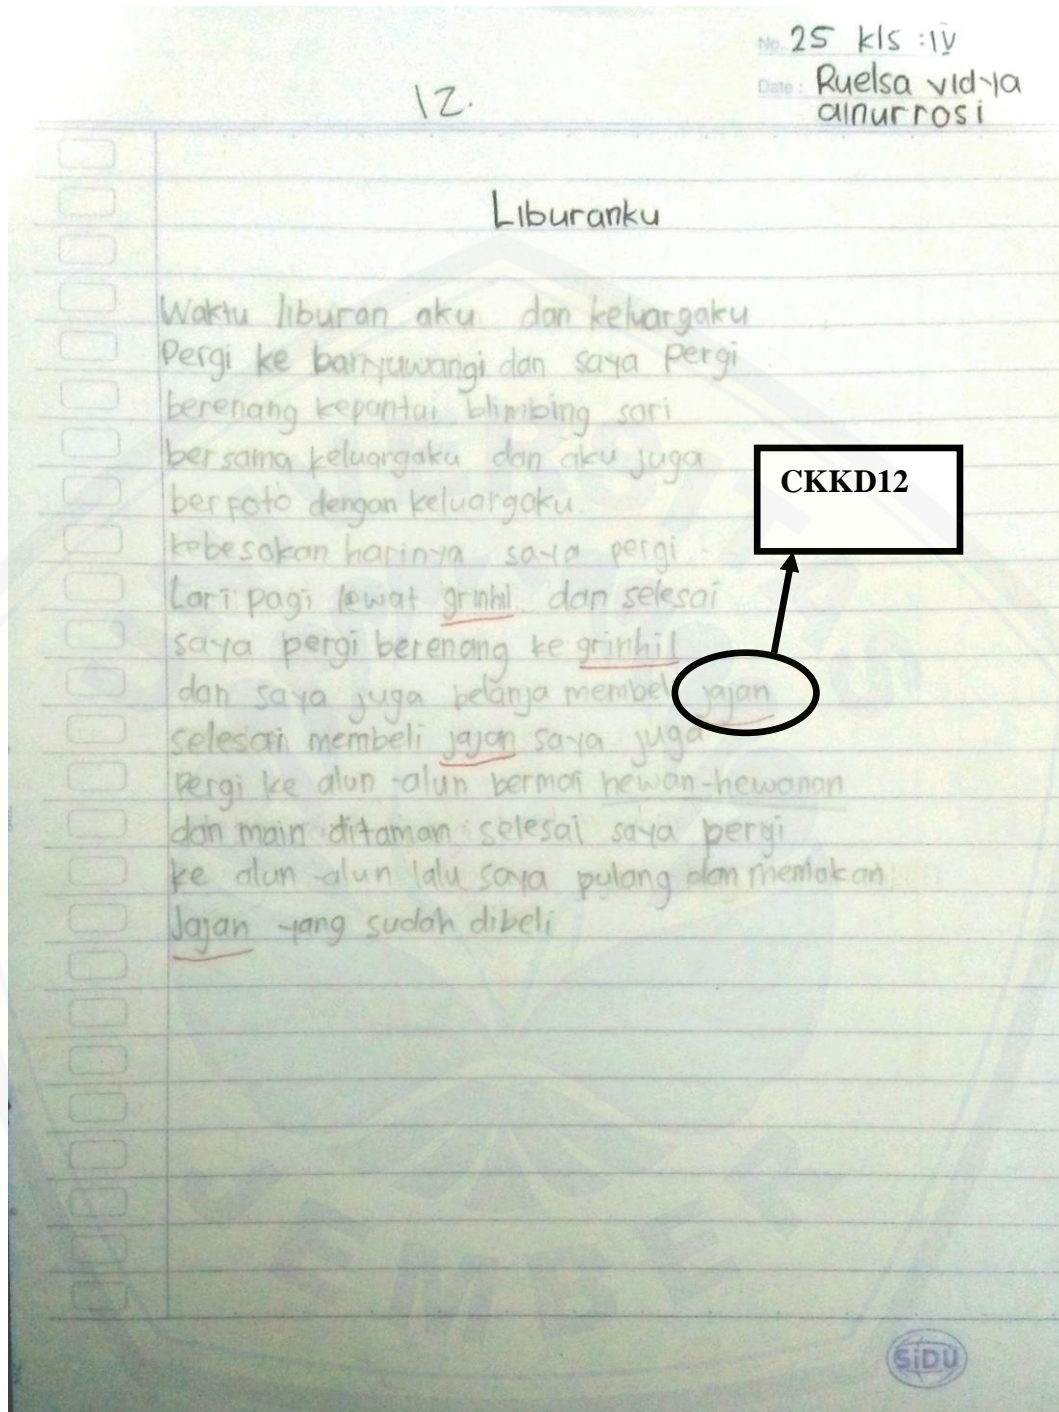 No. 25 kls : IV
Date : Ruelsa vidya
ainurrosi
12.
Liburanku
Waktu liburan aku dan keluargaku
Pergi ke banyuwangi dan saya Pergi
berenang kepantai blimbing sari
bersama keluargaku dan aku juga
berfoto dengan keluargaku.
kebesokan harinya saya pergi
Lari pagi lewat grinhil dan selesai
saya pergi berenang ke grinhil
dan saya juga belanja membeli jajan
CKKD12
selesai membeli jajan saya juga
Pergi ke alun-alun bermai hewan-hewanan
dan main ditaman selesai saya pergi
ke alun-alun lalu saya pulang dan memakan
Jajan yang sudah dibeli
UNIVERSITAS
JEMBER
SiDU